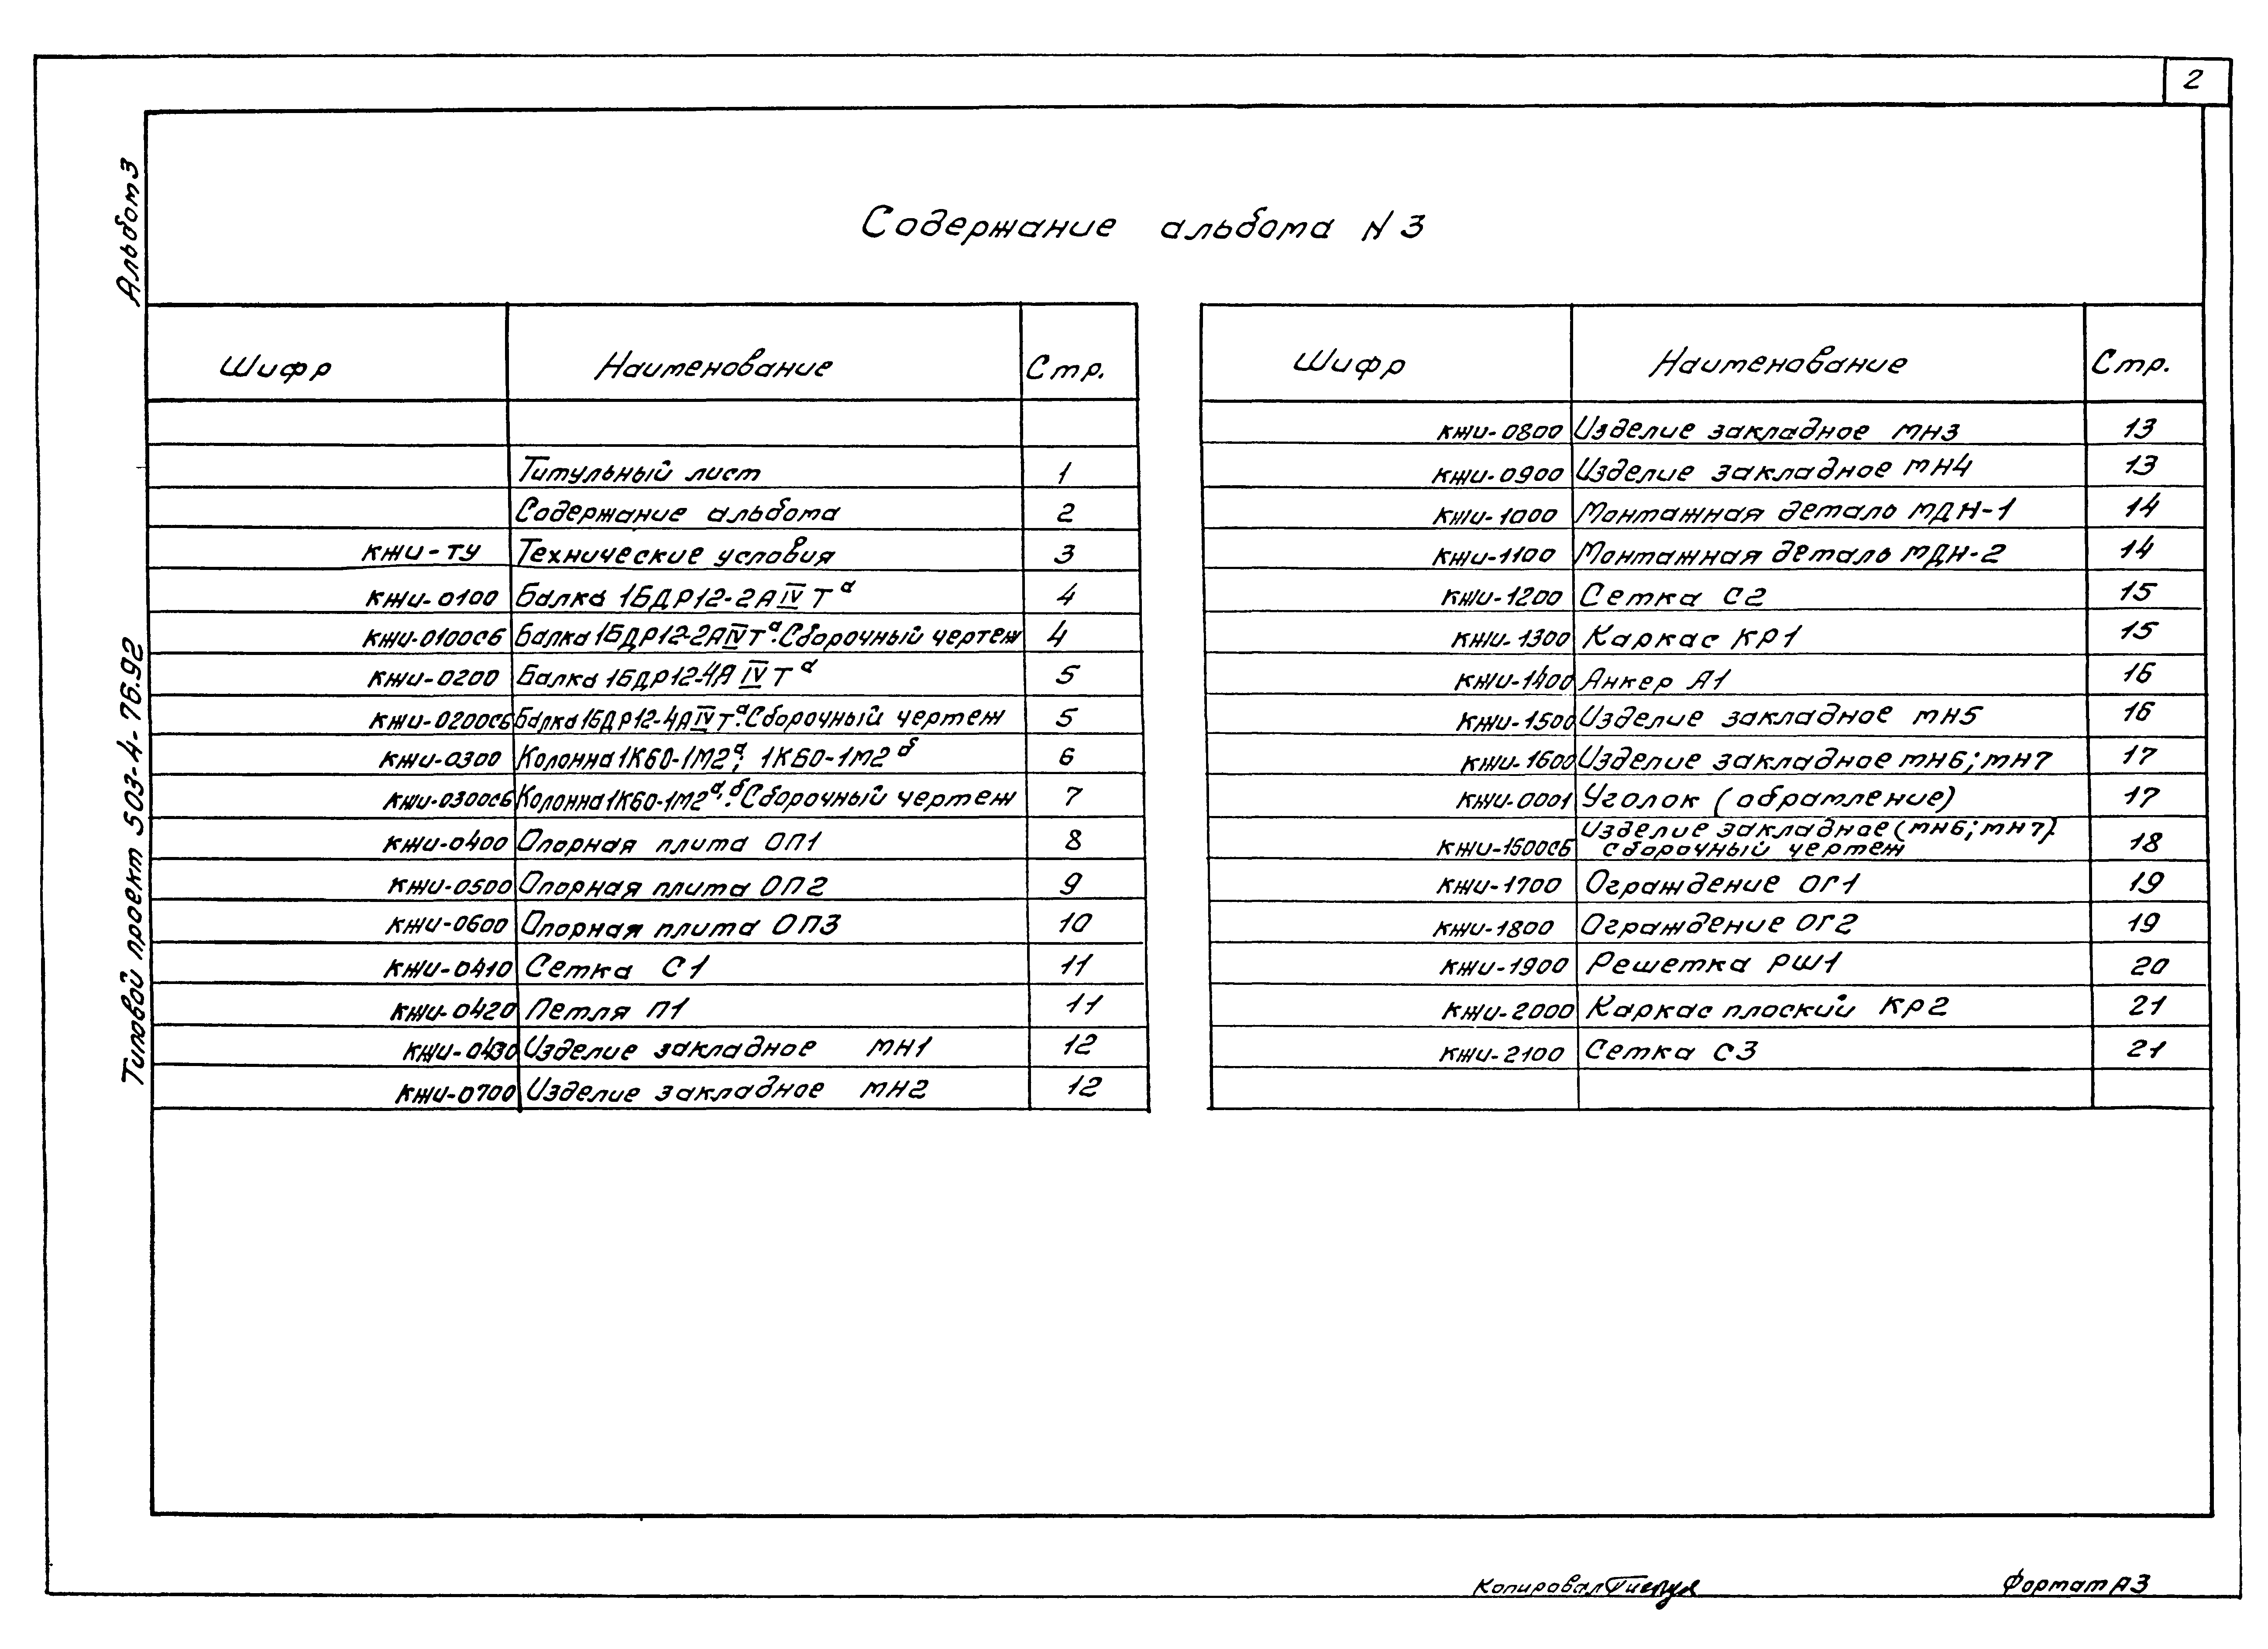 2
Альбом 3
Типовой проект 503-4-76.92
Содержание альбома N 3
Шифр Наименование Стр.
Титульный лист 1
Содержание альбома 2
КЖИ-ТУ Технические условия 3
КЖИ-0100 Балка 1БДР12-2АIVТᵃ 4
КЖИ-0100СБ Балка 1БДР12-2АIVТᵃ. Сборочный чертеж 4
КЖИ-0200 Балка 1БДР12-4АIVТᵃ 5
КЖИ-0200СБ Балка 1БДР12-4АIVТᵃ. Сборочный чертеж 5
КЖИ-0300 Колонна 1К60-1М2ᵃ; 1К60-1М2ᵇ 6
КЖИ-0300СБ Колонна 1К60-1М2ᵃ,ᵇ. Сборочный чертеж 7
КЖИ-0400 Опорная плита ОП1 8
КЖИ-0500 Опорная плита ОП2 9
КЖИ-0600 Опорная плита ОП3 10
КЖИ-0410 Сетка С1 11
КЖИ-0420 Петля П1 11
КЖИ-0430 Изделие закладное МН1 12
КЖИ-0700 Изделие закладное МН2 12
Шифр Наименование Стр.
КЖИ-0800 Изделие закладное МН3 13
КЖИ-0900 Изделие закладное МН4 13
КЖИ-1000 Монтажная деталь МДН-1 14
КЖИ-1100 Монтажная деталь МДН-2 14
КЖИ-1200 Сетка С2 15
КЖИ-1300 Каркас КР1 15
КЖИ-1400 Анкер А1 16
КЖИ-1500 Изделие закладное МН5 16
КЖИ-1600 Изделие закладное МН6; МН7 17
КЖИ-0001 Уголок (обрамление) 17
Изделие закладное (МН6; МН7).
КЖИ-1600СБ сборочный чертеж 18
КЖИ-1700 Ограждение ОГ1 19
КЖИ-1800 Ограждение ОГ2 19
КЖИ-1900 Решетка РШ1 20
КЖИ-2000 Каркас плоский КР2 21
КЖИ-2100 Сетка С3 21
Копировал Формат А3